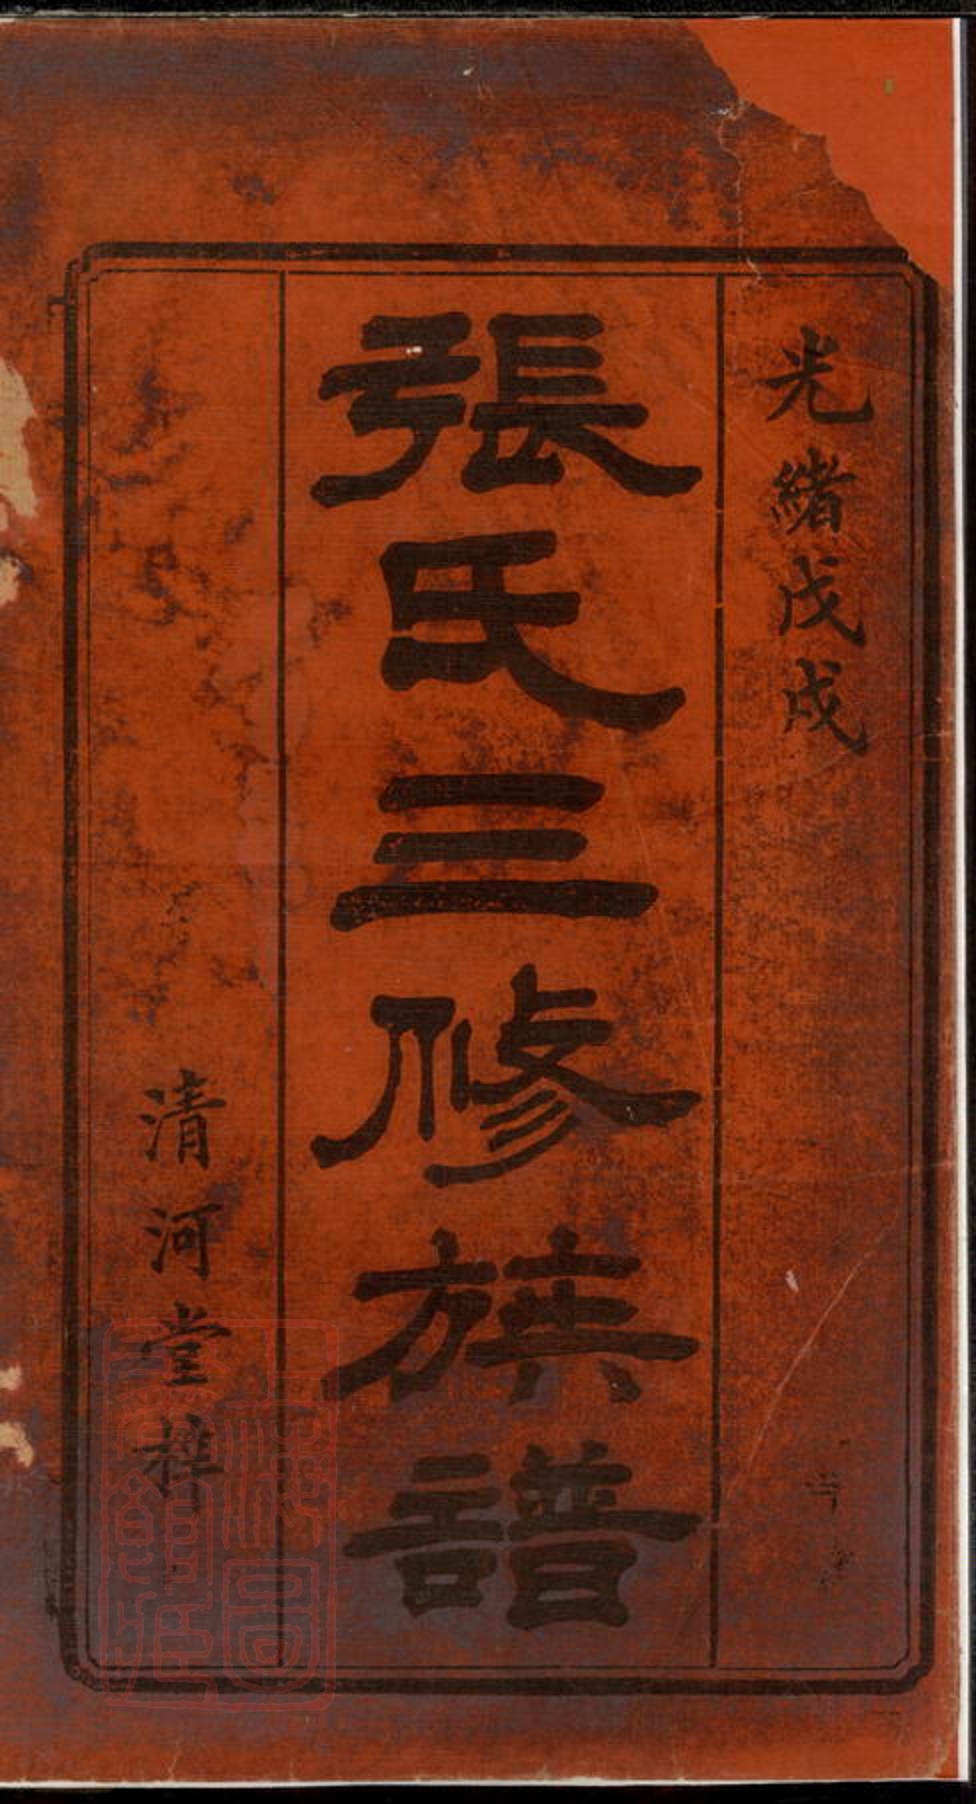 光緒戊戌
張氏三修族譜
清河堂梓